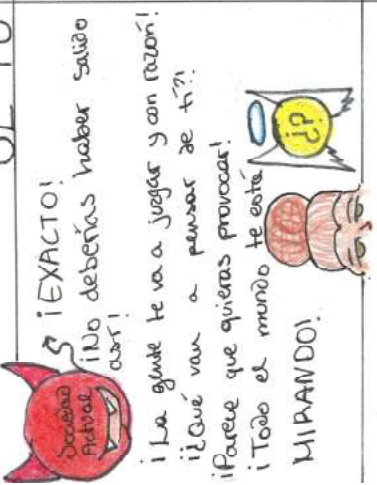 Sociedad
Actual
¡EXACTO!
¡No deberías haber salido
así!
¡La gente te va a juzgar y con razón!
¡¿Qué van a pensar de tí?!
¡Parece que quieras provocar!
¡Todo el mundo te está
MIRANDO!
¡?